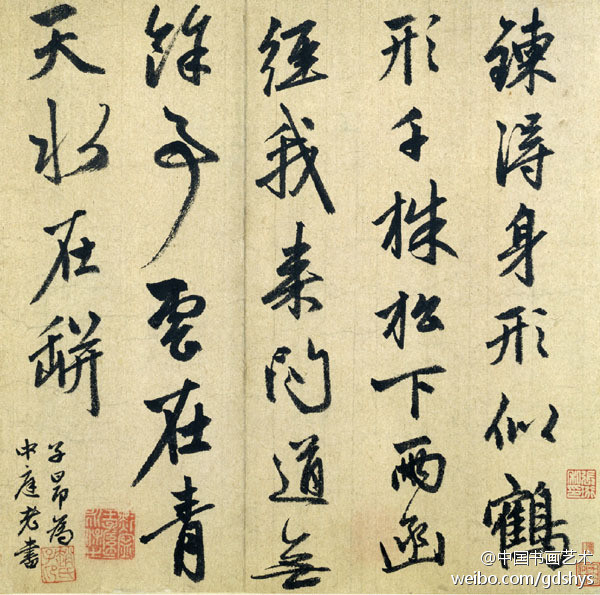 鍊得身形似鶴
形千株松下兩函
經我来問道無
餘事雲在青
天水在缾
子昂為
中庭老書
@中国书画艺术
weibo.com/gdshys